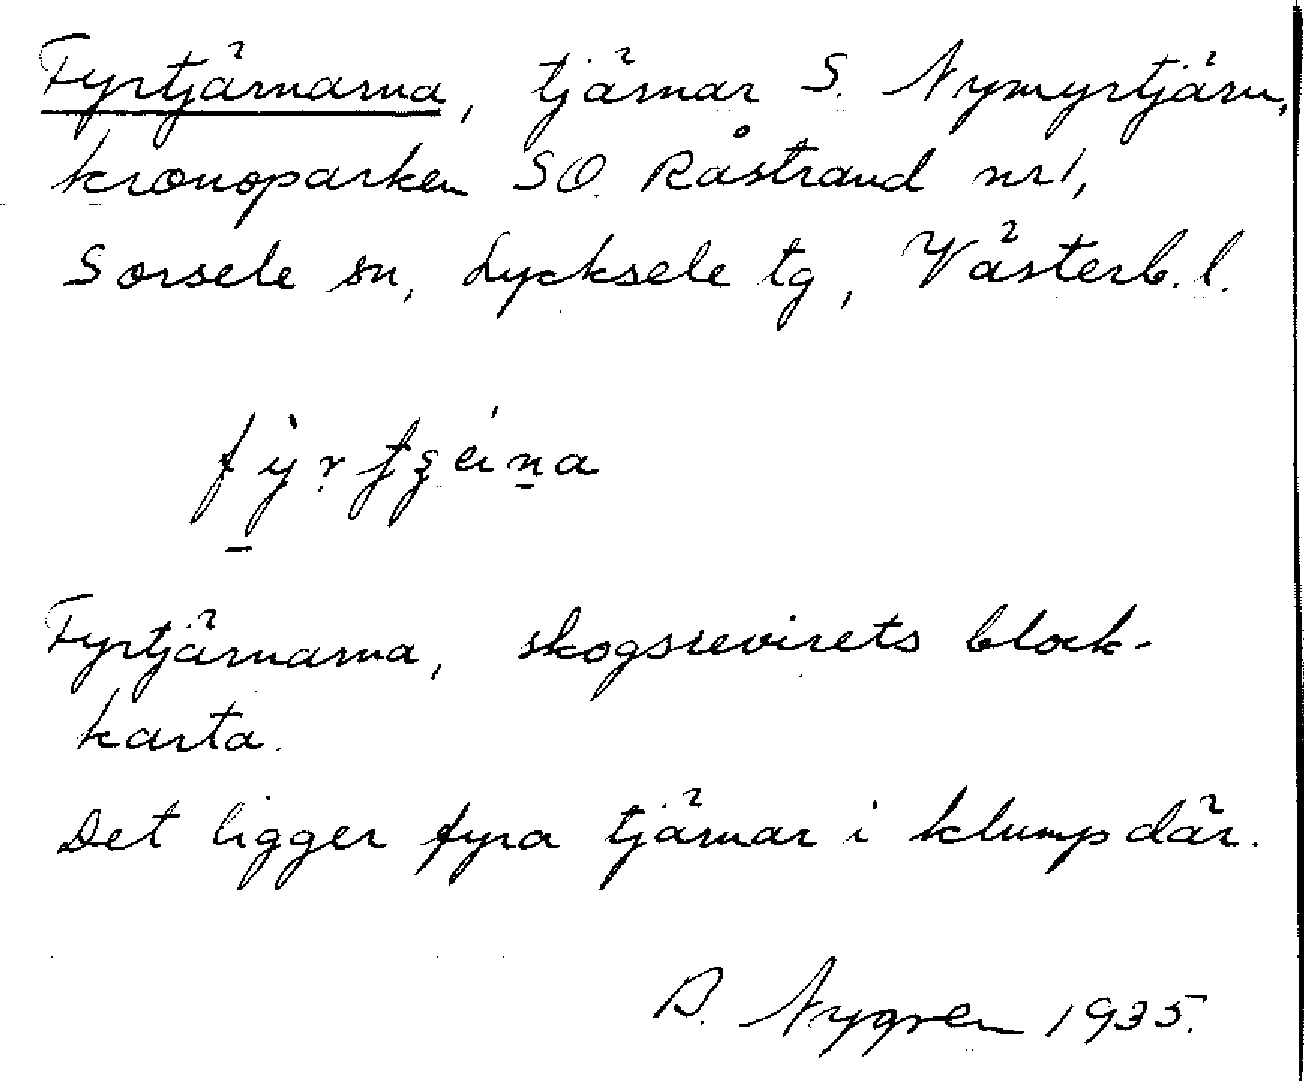 Fyrtjärnarna, tjärnar S. Nymyrtjärn,
kronoparken SO Råstrand nr 1,
Sorsele sn, Lycksele tg, Västerb. l.
Fyrtjärnarna, skogsrevirets block-
karta.
Det ligger fyra tjärnar i klump där.
B. Nygren 1935.